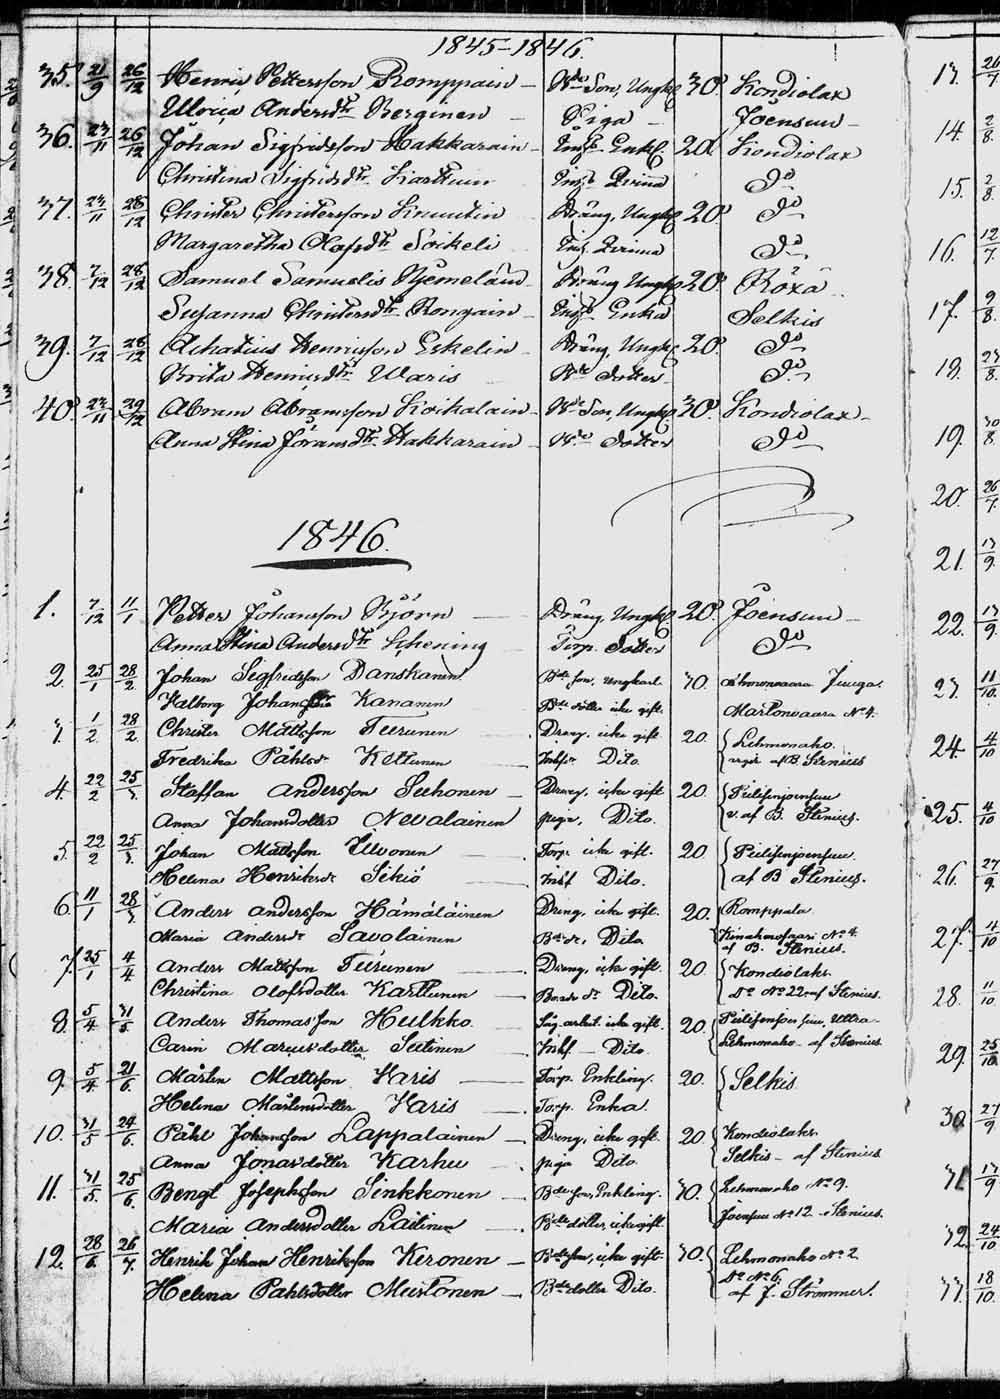 1845-1846.
35. 21/9 26/12 Henric Pettersson Romppain - Bde Son, Ungk. 30. Kondiolax
Ulrica Andersdtr Berginen - Piga - Joensuu -
36. 23/11 26/12 Johan Sigfridsson Hakkarain - Inhs. Enkl. 20. Kondiolax
Christina Sigfridsdtr Karttuin Inhs. Qvinna Do
37. 23/11 28/12 Christer Christersson Knuutin Dräng, Ungk. 20. Do
Margaretha Olofsdtr Soikeli Inhs. Qvinna Do
38. 7/12 28/12 Samuel Samuelis Dräng Ungk. 20. Röxä
Susanna Christersdtr Rongain - Inhs. Enka Selkis
39. 7/12 26/12 Achatius Henricsson Eskelin - Dräng, Ungk. 20. Do
Brita Henricsdtr Waris Bde Dotter Do
40. 23/11 29/12 Abram Abramsson Koikalain - Bde Son, Ungk. 30. Kondiolax -
Anna Stina Göransdtr Hakkarain - Bde Dotter Do
1846.
1. 7/12 11/1 Petter Johansson Björn Dräng Ungk. 20. Joensuu -
Anna Stina Andersdtr Schening Torp. Dotter Do
2. 25/1 28/2 Johan Sigfridsson Danskanen Bde son, ungkarl 30. Juuga.
Valborg Kananen Bde dotter icke gift. Martonvaara No 4.
3. 1/2 28/2 Christer Mattsson Teerunen Dreng icke gift 20. Lehmonaho.
Fredrika Påhlsd. Kettunen Inhs. Dito. af B. Stenius
4. 22/2 25/3 Staffan Andersson Sihonen Dreng, icke gift 20.
Anna Johansdotter Nevalainen piga, Dito. v. af B. Stenius.
5. 22/2 25/3 Johan Mattsson Torp. icke gift. 20
Helena Henriksdr Sikiö Inhs Dito. af B Stenius.
6. 11/1 28/3 Anders Andersson Hämäläinen Dreng, icke gift. 20. Romppala
Maria Andersdr Savolainen Bde dr, Dito. No 4. af B. Stenius.
7. 25/1 4/4 Anders Mattsson Teerunen Dreng, icke gift. 20. Kondiolaks.
Christina Olofsdotter Karttunen dr Dito. Do No 22 af Stenius.
8. 5/4 31/5 Anders Thomasson Hulkko. Såg. arbet. icke gift. 20. Uttra
Carin Marcusdotter Sutinen Inhs. - Dito. Lehmonaho - af Stenius
9. 5/4 21/6 Mårten Mattsson Varis Torp. Enkling. 20. Selkis.
Helena Mårtensdotter Varis Torp. Enka.
10. 31/5 24/6 Påhl Johansson Lappalainen Dreng, icke gift. 20 Kondiolaks.
Anna Jonasdotter Karhu piga Dito. Selkis - af Stenius
11. 31/5 25/6 Bengt Josephsson Sinkkonen Bde son, Enkling. 30. Lehmonaho No 9.
Maria Andersdotter Laitinen Bde dotter, icke gift Joensuu No 12. Stenius.
12. 28/6 26/7 Henrik Johan Henriksson Keronen Bde son, icke gift. 30. Lehmonaho No 2
Helena Påhlsdotter Mustonen Bde dotter Dito. Do No 6. af J. Strömmer.
13. 26/7
14. 2/8
15. 2/8
16. 12/7
17. 9/8
18. 23/8
19. 30/8
20. 26/7
21. 13/9
22. 13/9
23. 11/10
24. 4/10
25. 4/10
26. 27/9
27. 11/10
28. 11/10
29. 25/10
30. 27/9
31. 13/9
32. 24/10
33. 18/10